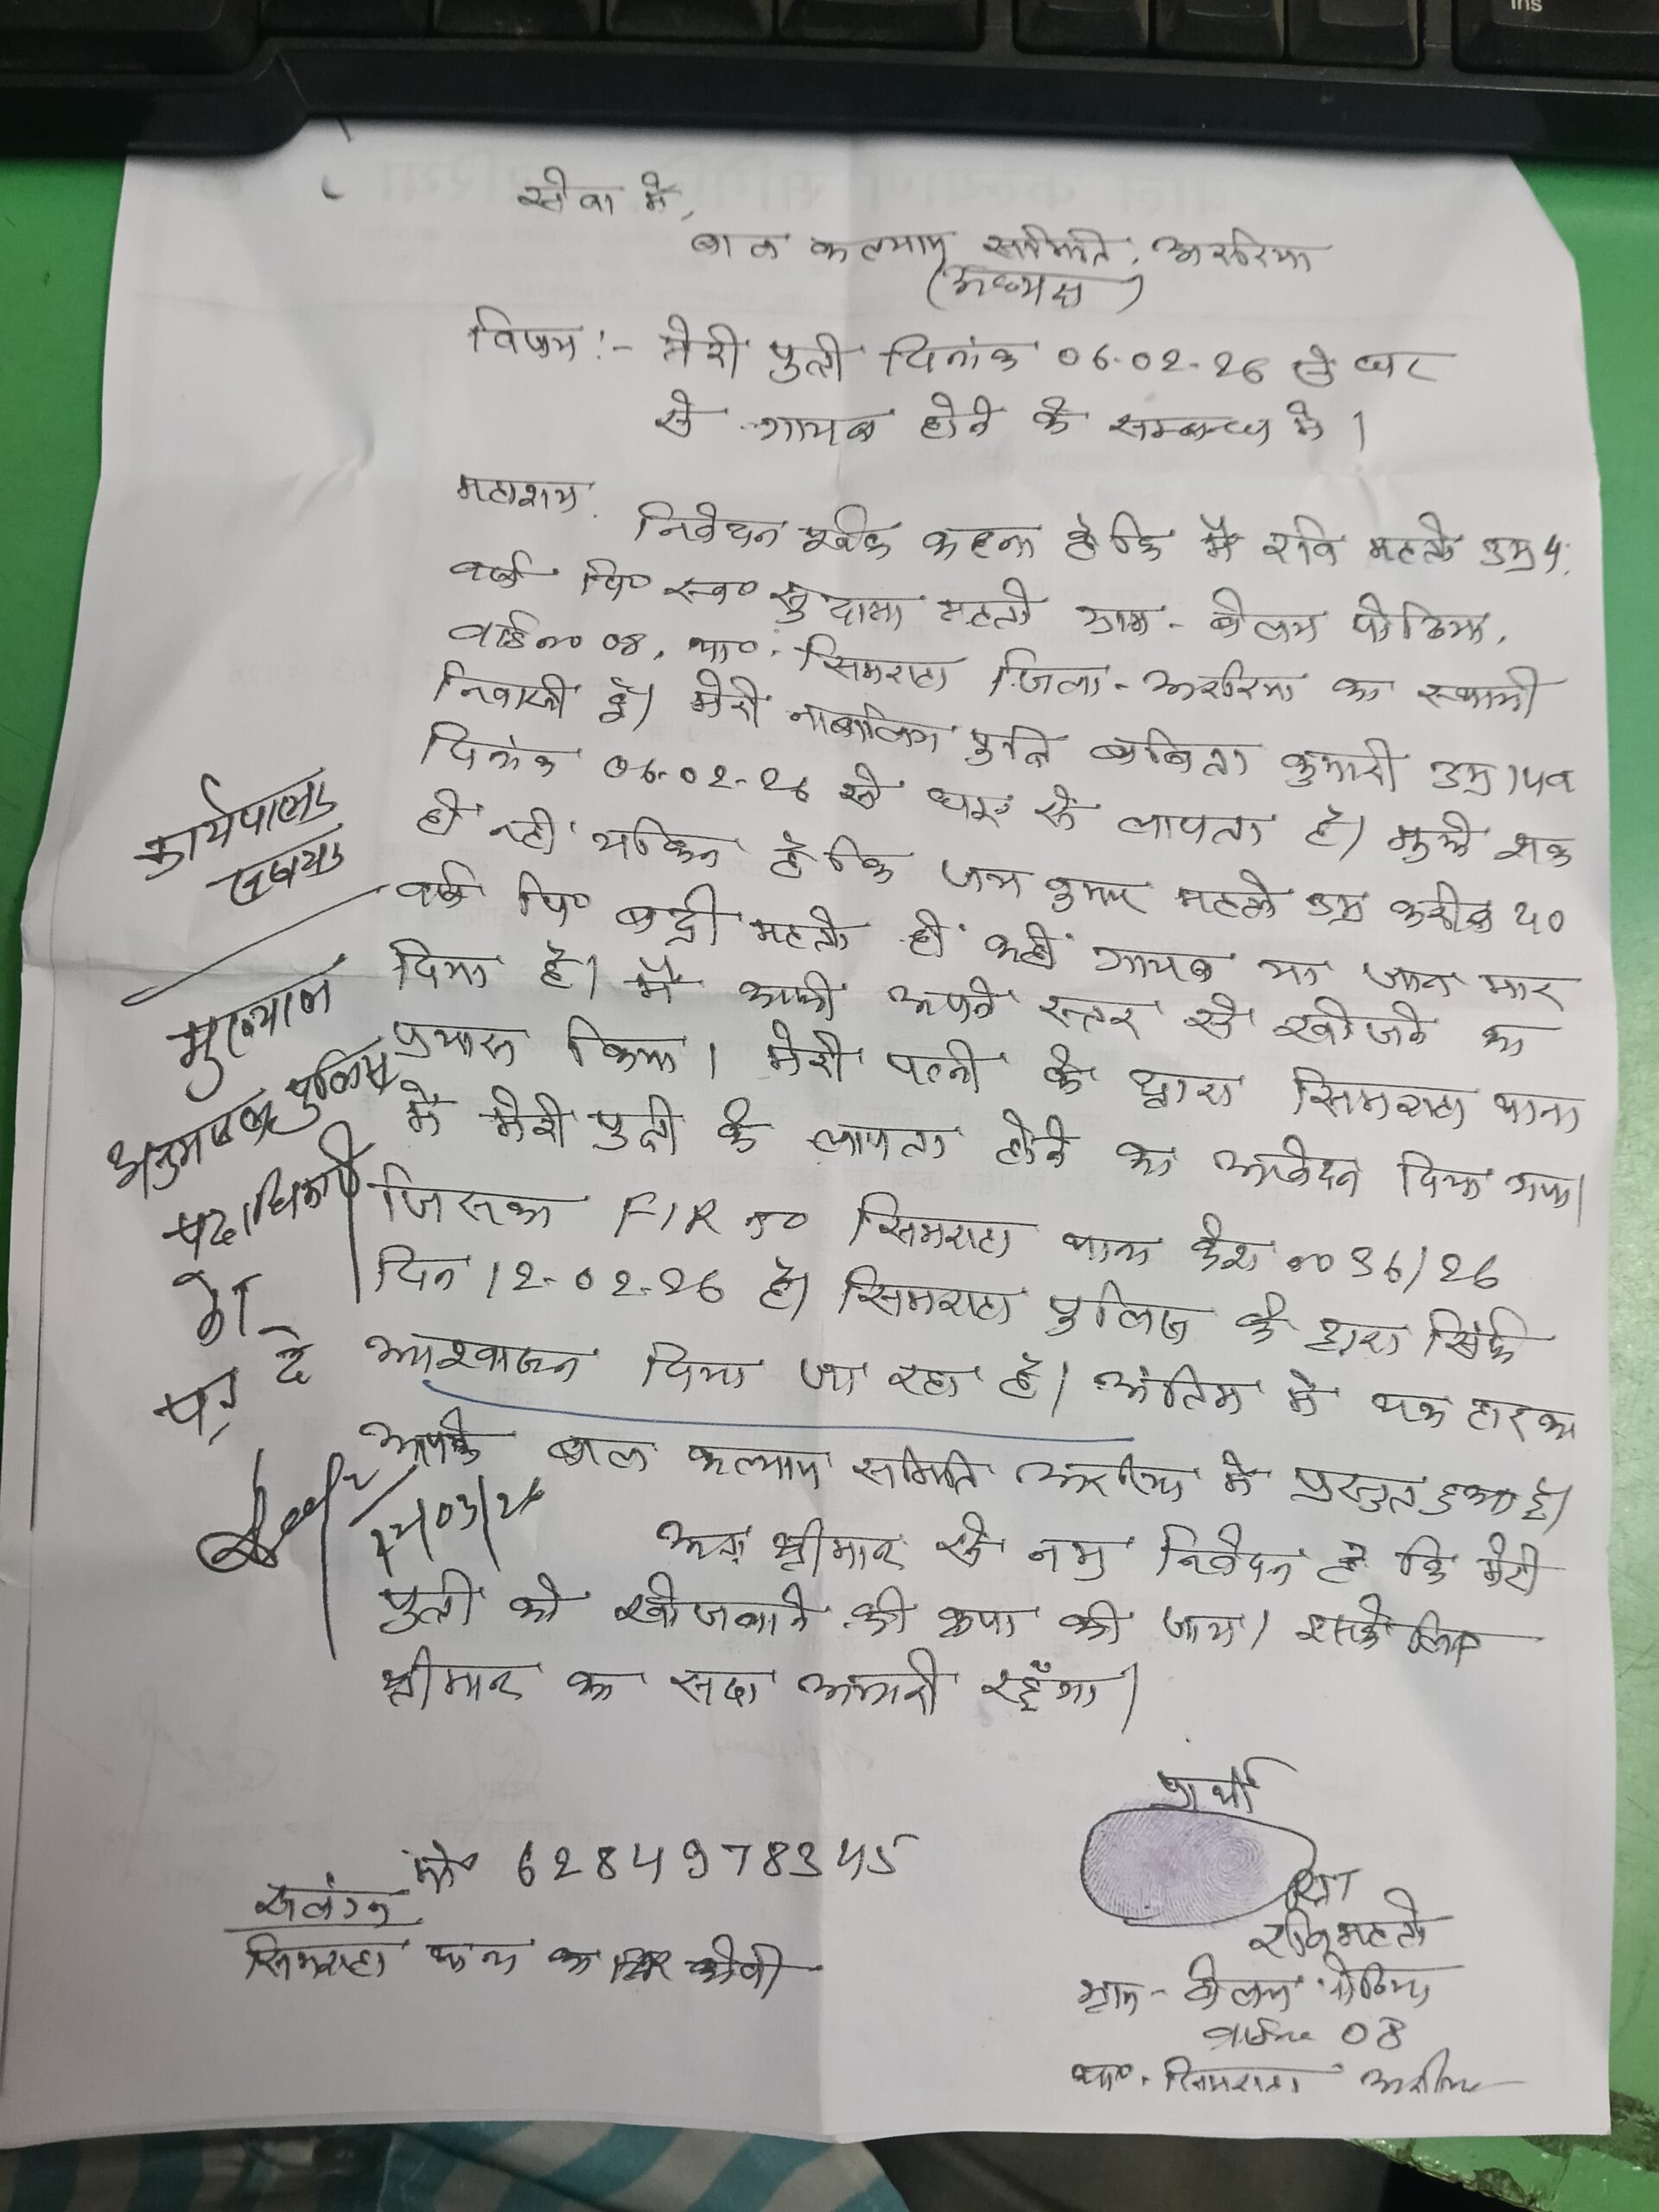 सेवा में,
बाल कल्याण समिति, अररिया
(अध्यक्ष)
विषय :- मेरी पुत्री दिनांक 06-02-26 से घर
से गायब होने के सम्बन्ध में।
महाशय,
निवेदन पूर्वक कहना है कि मैं रवि महतो उम्र
वर्ष पि० स्व० सुदामा महतो ग्राम -
वार्ड no 08, था०- सिमराहा जिला - अररिया का स्थायी
निवासी हूँ। मेरी नाबालिग पुत्रि बबिता कुमारी उम्र
दिनांक 06-02-26 से घर से लापता है। मुझे शक
ही नहीं यकिन है कि जय कुमार महतो उम्र करीब 40
वर्ष पि० बद्री महतो ही कहीं गायब या जान मार
दिया है। मैं काफी अपने स्तर से खोजने का
प्रयास किया। मेरी पत्नी के द्वारा सिमराहा थाना
में मेरी पुत्री के लापता होने का आवेदन दिया गया।
जिसका FIR no सिमराहा थाना केश no 36/26
दिन 12-02-26 है। सिमराहा पुलिस के द्वारा सिर्फ
आश्वासन दिया जा रहा है। अंतिम में थक हार कर
आपके बाल कल्याण समिति अररिया में प्रस्तुत हुआ हूँ।
अतः श्रीमान से नम्र निवेदन है कि मेरी
पुत्री को खोजवाने की कृपा की जाय। इसके लिए
श्रीमान का सदा आभारी रहूँगा।
कार्यपालक
मुख्यालय
पुलिस
पदाधिकारी
को
पत्र दें
प्रार्थी
रवि महतो
वार्ड no 08
था०- सिमराहा अररिया
मो० 6284978345
संलग्न
सिमराहा थाना का FIR कॉपी